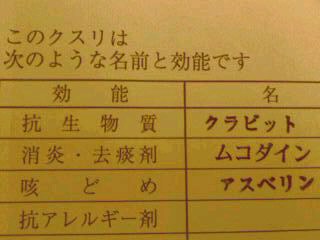 このクスリは
次のような名前と効能です
効能 名
抗生物質 クラビット
消炎・去痰剤 ムコダイン
咳どめ アスベリン
抗アレルギー剤